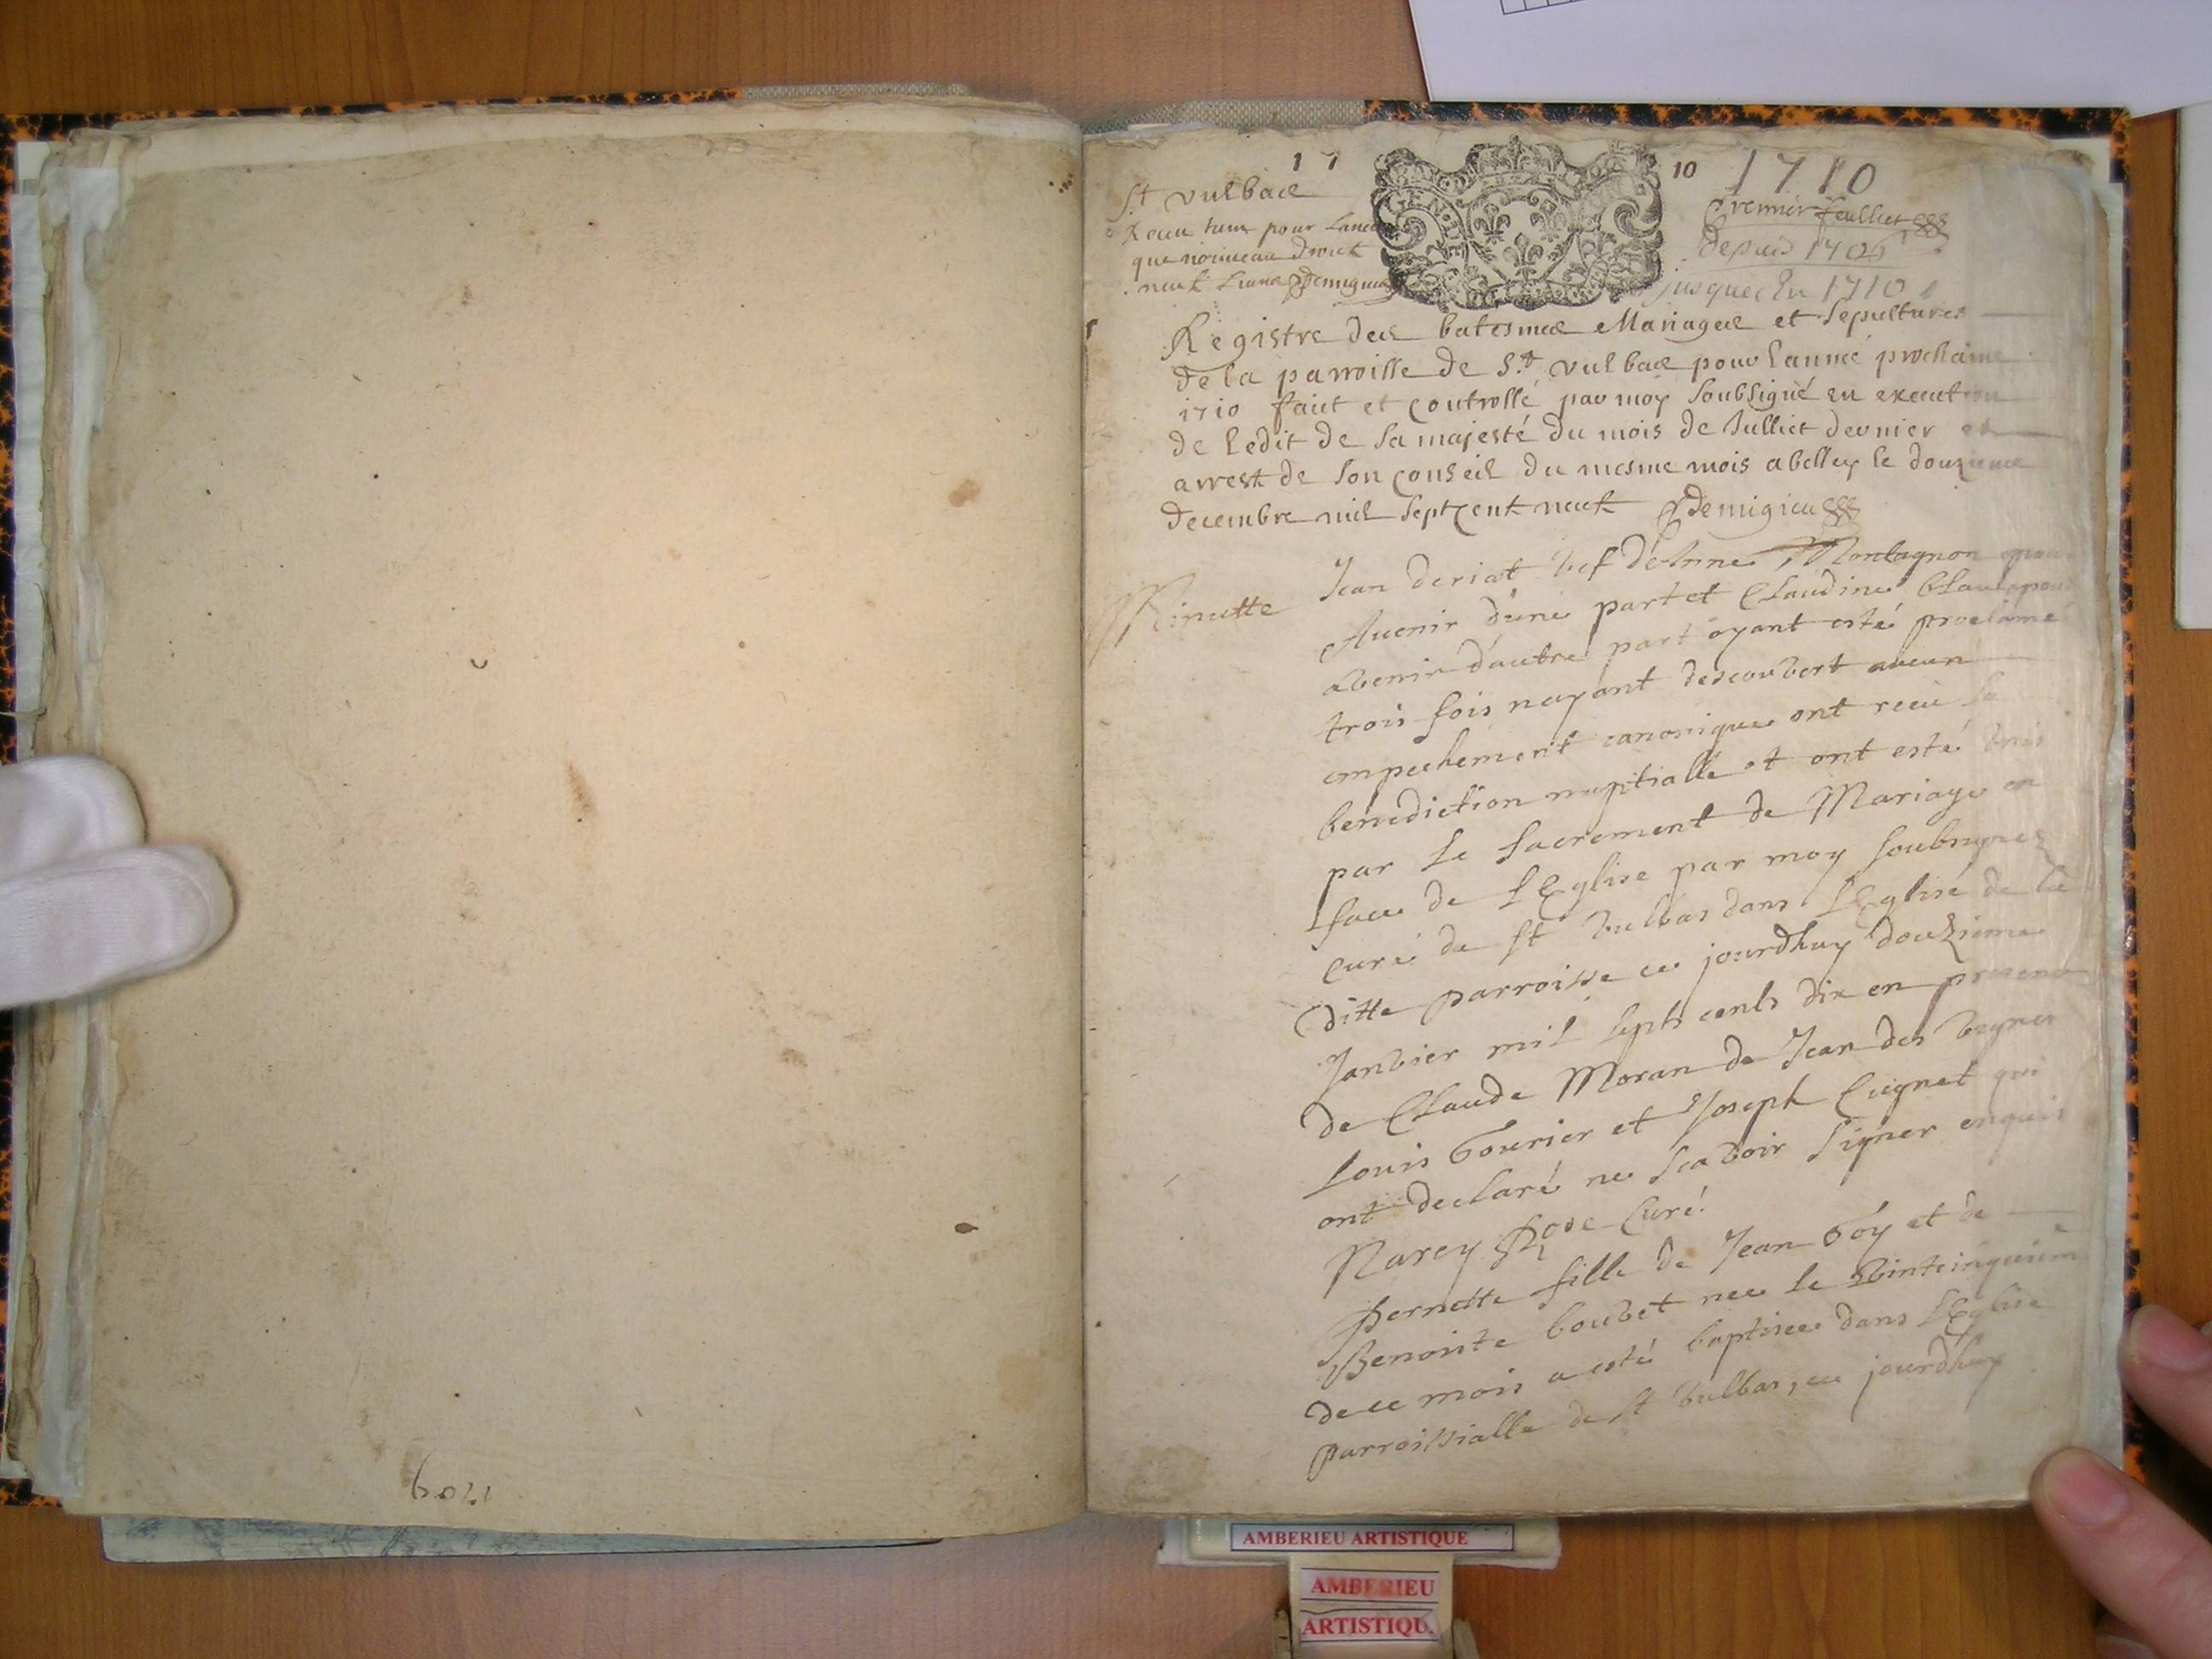 1709
17
10
1710
St vulbas
premier feulliet
depuis 1706
jusques En 1710
que nouveau droit
neuf Liures Demigieu
GEN
Registre des batesmes Mariages et sepultures
de la parroisse de St vulbas pour lannée prochaine
1710 faict et controllé par moy soubsigné en execution
de ledit de sa majesté du mois de Julliet dernier et
arrest de son conseil du mesme mois a belley le douzieme
decembre mil sept cent neuf Demigieu
Minutte
Jean deriat vef de Anne Montagnon epoux
Auenir d'une part et Claudine
avenir d'autre part ayant esté proclamé
trois fois nayant descouvert aucun
empechement canonique ont receu la
benediction nuptialle et ont esté vnis
par le sacrement de Mariage en
face de l'Eglise par moy soubsignez
Curé de st Vulbas dans l'Eglise de la
ditte parroisse ce jourdhuy douzieme
Janvier mil septs cents dix en presence
de Claude Moran de Jean des vignes
Louis Gourier et Joseph Cugnet qui
ont declaré ne scavoir signer enquis
Narcy Curé
Pernette fille de Jean Goy et de
Benoite bouvet nee le Vintcinquiem
de ce mois a esté baptisee dans l'Eglise
parroissialle de st Vulbas, ce jourdhuy
AMBERIEU ARTISTIQUE
AMBERIEU
ARTISTIQU